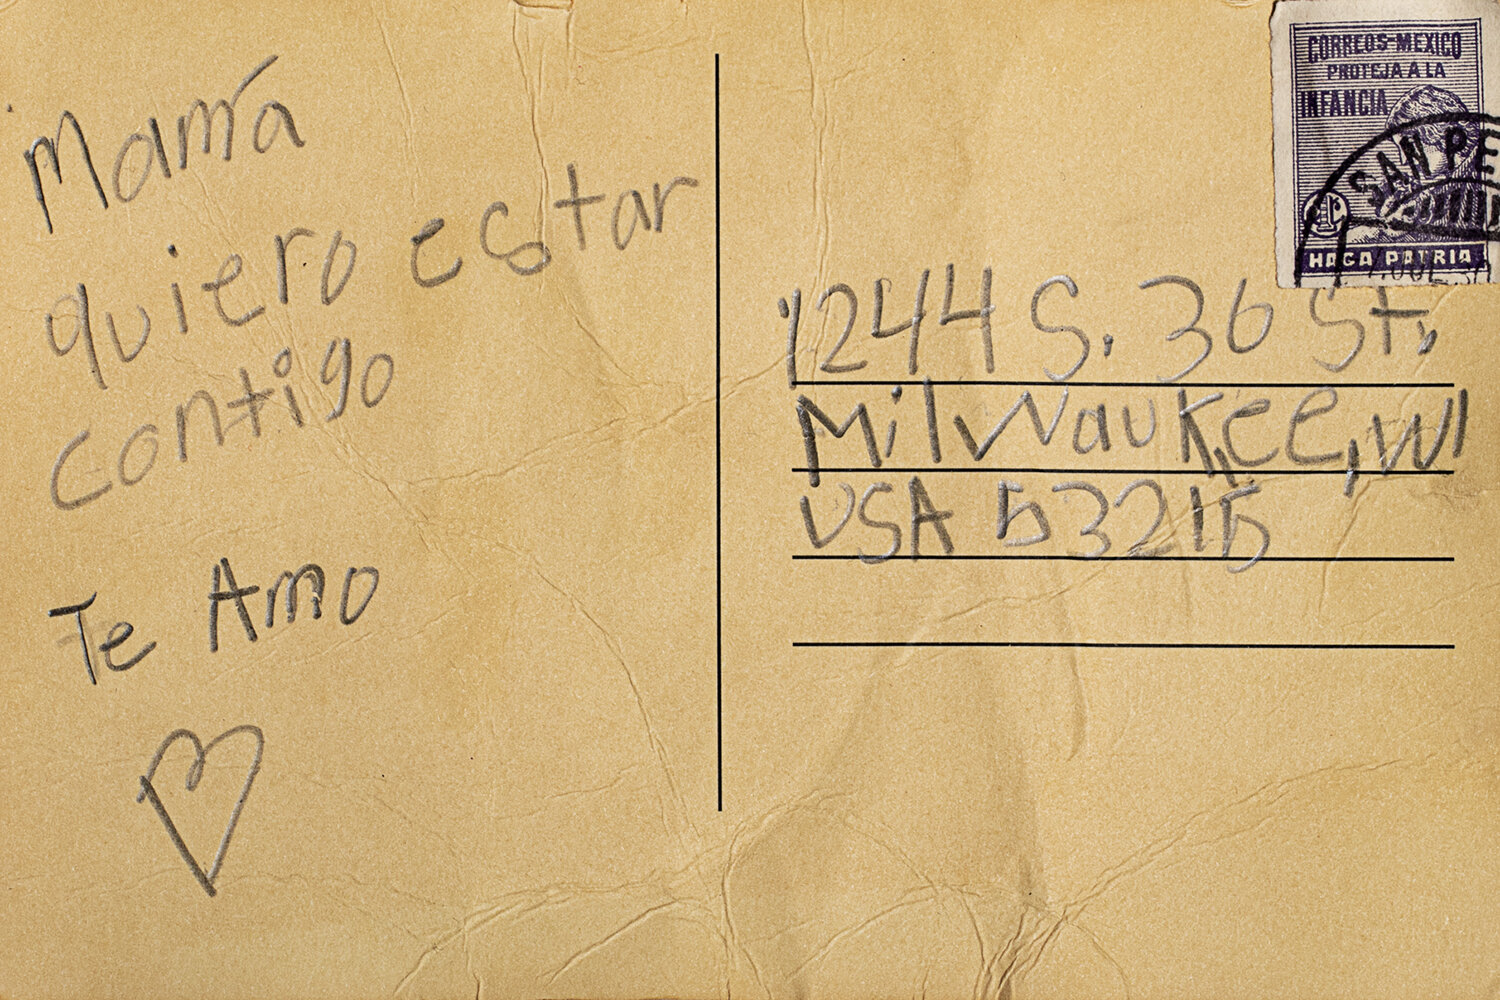 Mamá
quiero estar
contigo
Te Amo
CORREOS-MEXICO
PROTEJA A LA
INFANCIA
SAN PE
HAGA PATRIA
1244 S. 36 St.
Milwaukee, WI
USA 53215